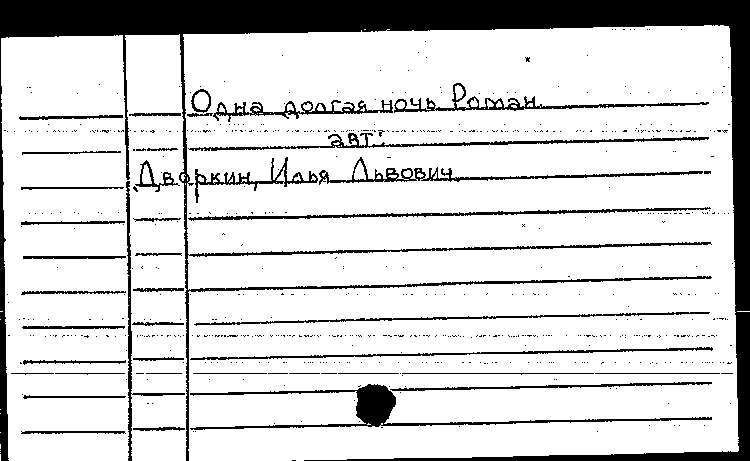 Одна долгая ночь Роман.
авт:
Дворкин, Илья Львович.